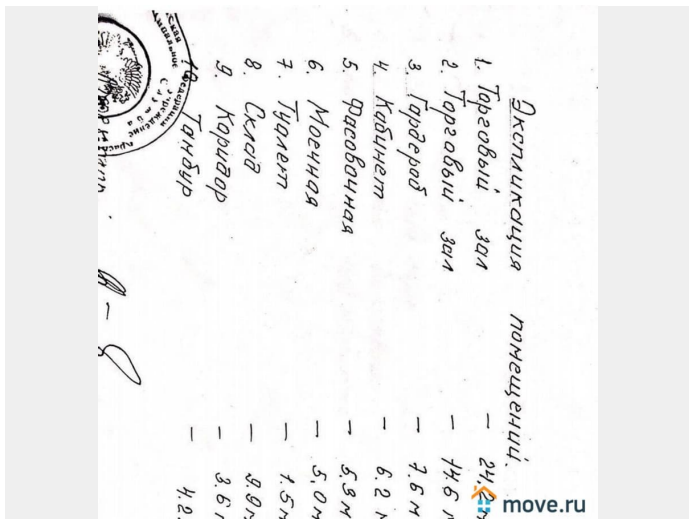 Экспликация помещений.
1. Торговый зал — 24,2 м
2. Торговый зал — 14.6 м
3. Гардероб — 7.6 м
4. Кабинет — 6.2 м
5. Фасовочная — 5,3 м
6. Моечная — 5,0 м
7. Туалет — 1.5 м
8. Склад — 9.9 м
9. Каридор — 3.6 м
10. Тамбур — 4.2
учреждение
move.ru